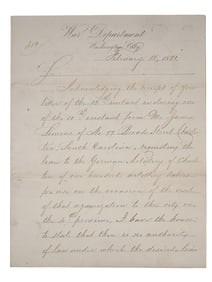 War Department
Washington City
February 18, 1881.
Sir
Acknowledging the receipt of your
letter of the 12th instant inclosing one
of the 10th instant from Mr. James
Simons of No. Broad Street Charles-
ton, South Carolina, regarding the
loan to the German Artillery of Charles-
ton of one hundred artillery sabres
for use on the occasion of the visit
of that organization to this city on
the 4th proximo, I have the honor
to state that there is no authority
of law under which the desired loan